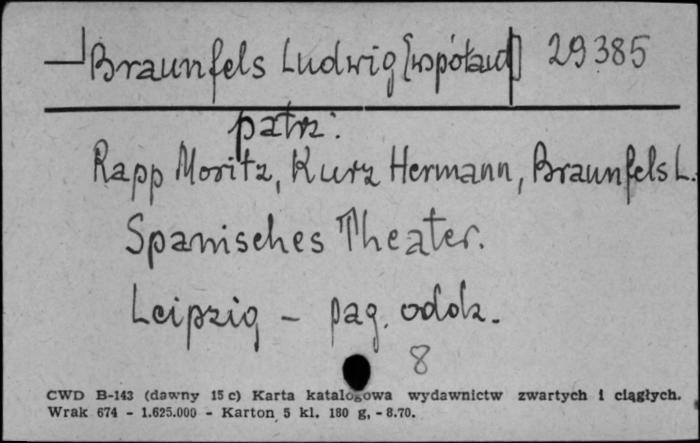 Braunfels Ludwig [współaut] 29385
patrz:
Rapp Moritz, Kurz Hermann, Braunfels L.
Spanisches Theater.
Leipzig - pag. oddz.
8
CWD B-143 (dawny 15 c) Karta katalogowa wydawnictw zwartych i ciągłych.
Wrak 674 - 1.625.000 - Karton 5 kl. 180 g, - 8.70.